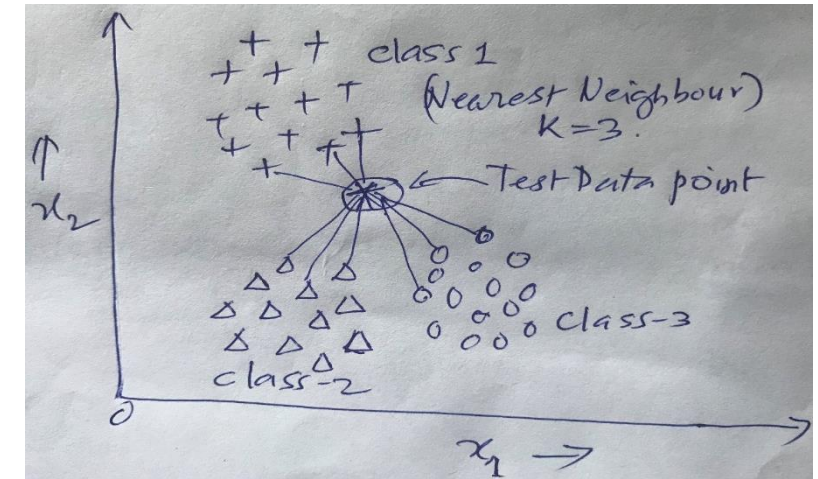 class 1
(Nearest Neighbour)
K=3.
Test Data point
↑
x₂
class-3
class-2
0
x₁ →